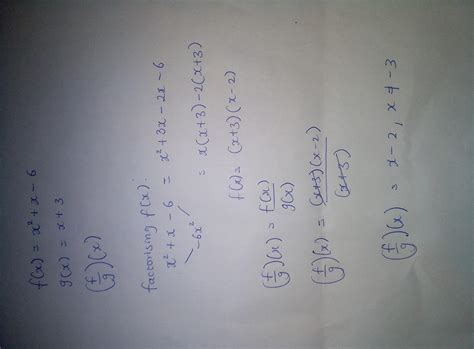 f(x) = x² + x - 6
g(x) = x + 3
(f/g)(x)
factorising f(x).
x² + x - 6 = x² + 3x - 2x - 6
-6x² = x(x+3) - 2(x+3)
f(x) = (x+3)(x-2)
(f/g)(x) = f(x)/g(x)
(f/g)(x) = (x+3)(x-2)/(x+3)
(f/g)(x) = x - 2, x ≠ -3